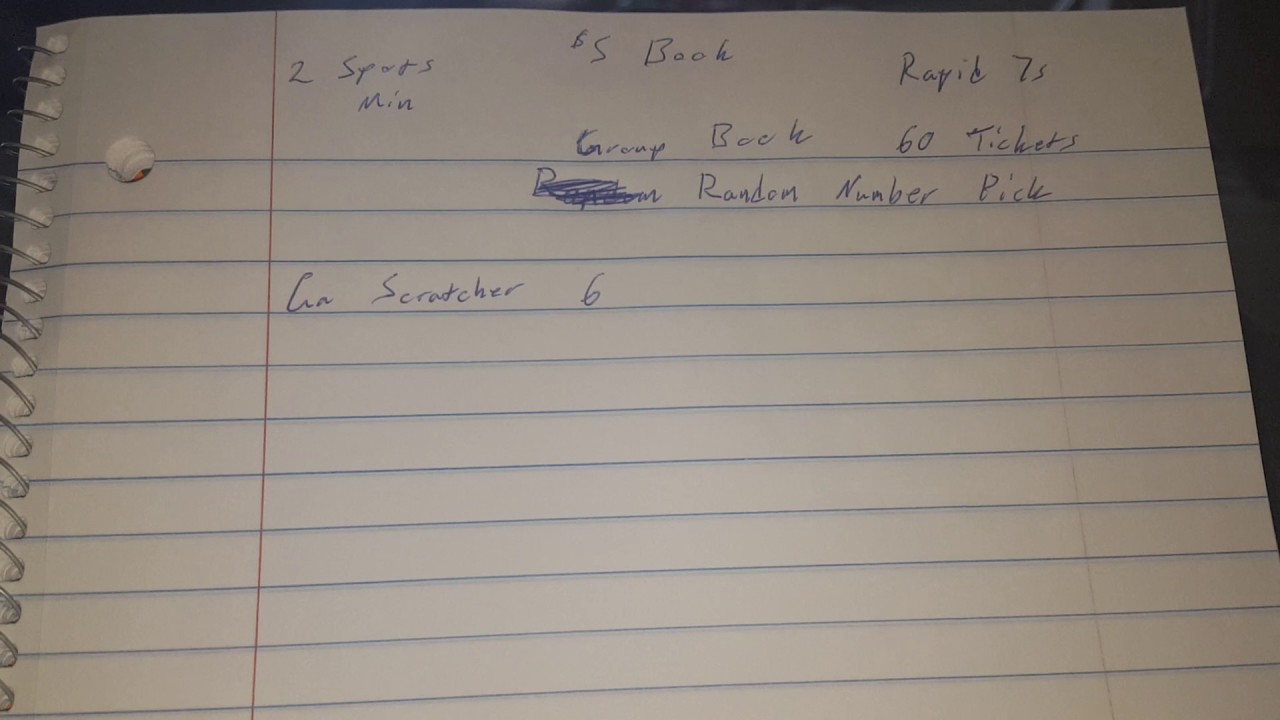 2 Spots $5 Book Rapid 7s
Min
Group Book 60 Tickets
Random Number Pick
Ga Scratcher 6